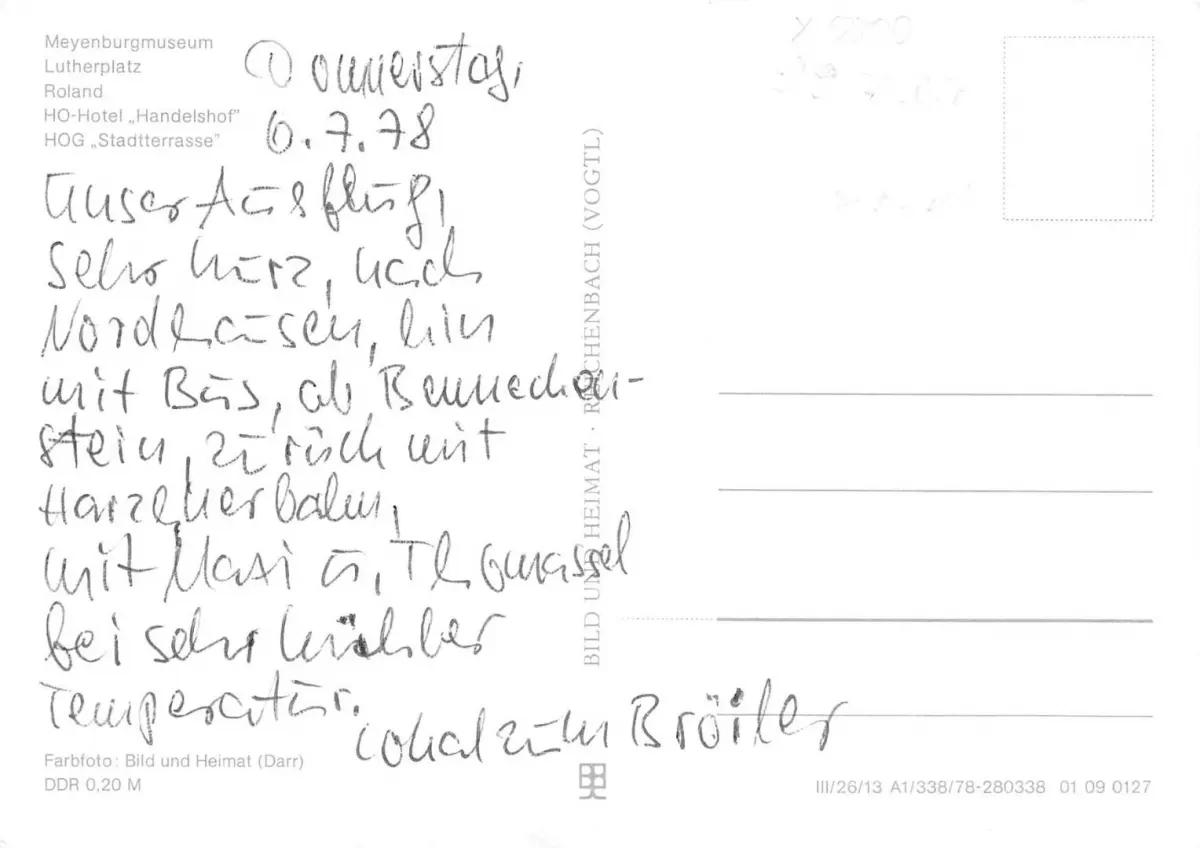 Meyenburgmuseum
Lutherplatz
Roland
HO-Hotel „Handelshof"
HOG „Stadtterrasse"
Donnerstag,
6.7.78
Unser Ausflug,
sehr kurz, nach
Nordhausen, hin
mit Bus, ab Bennecken-
stein, zurück mit
Harzquerbahn,
mit Maxi u. Thomassel
bei sehr kühler
Temperatur.
Lokal zum Broiler
BILD UND HEIMAT · REICHENBACH (VOGTL)
Farbfoto: Bild und Heimat (Darr)
DDR 0,20 M
III/26/13 A1/338/78-280338 01 09 0127